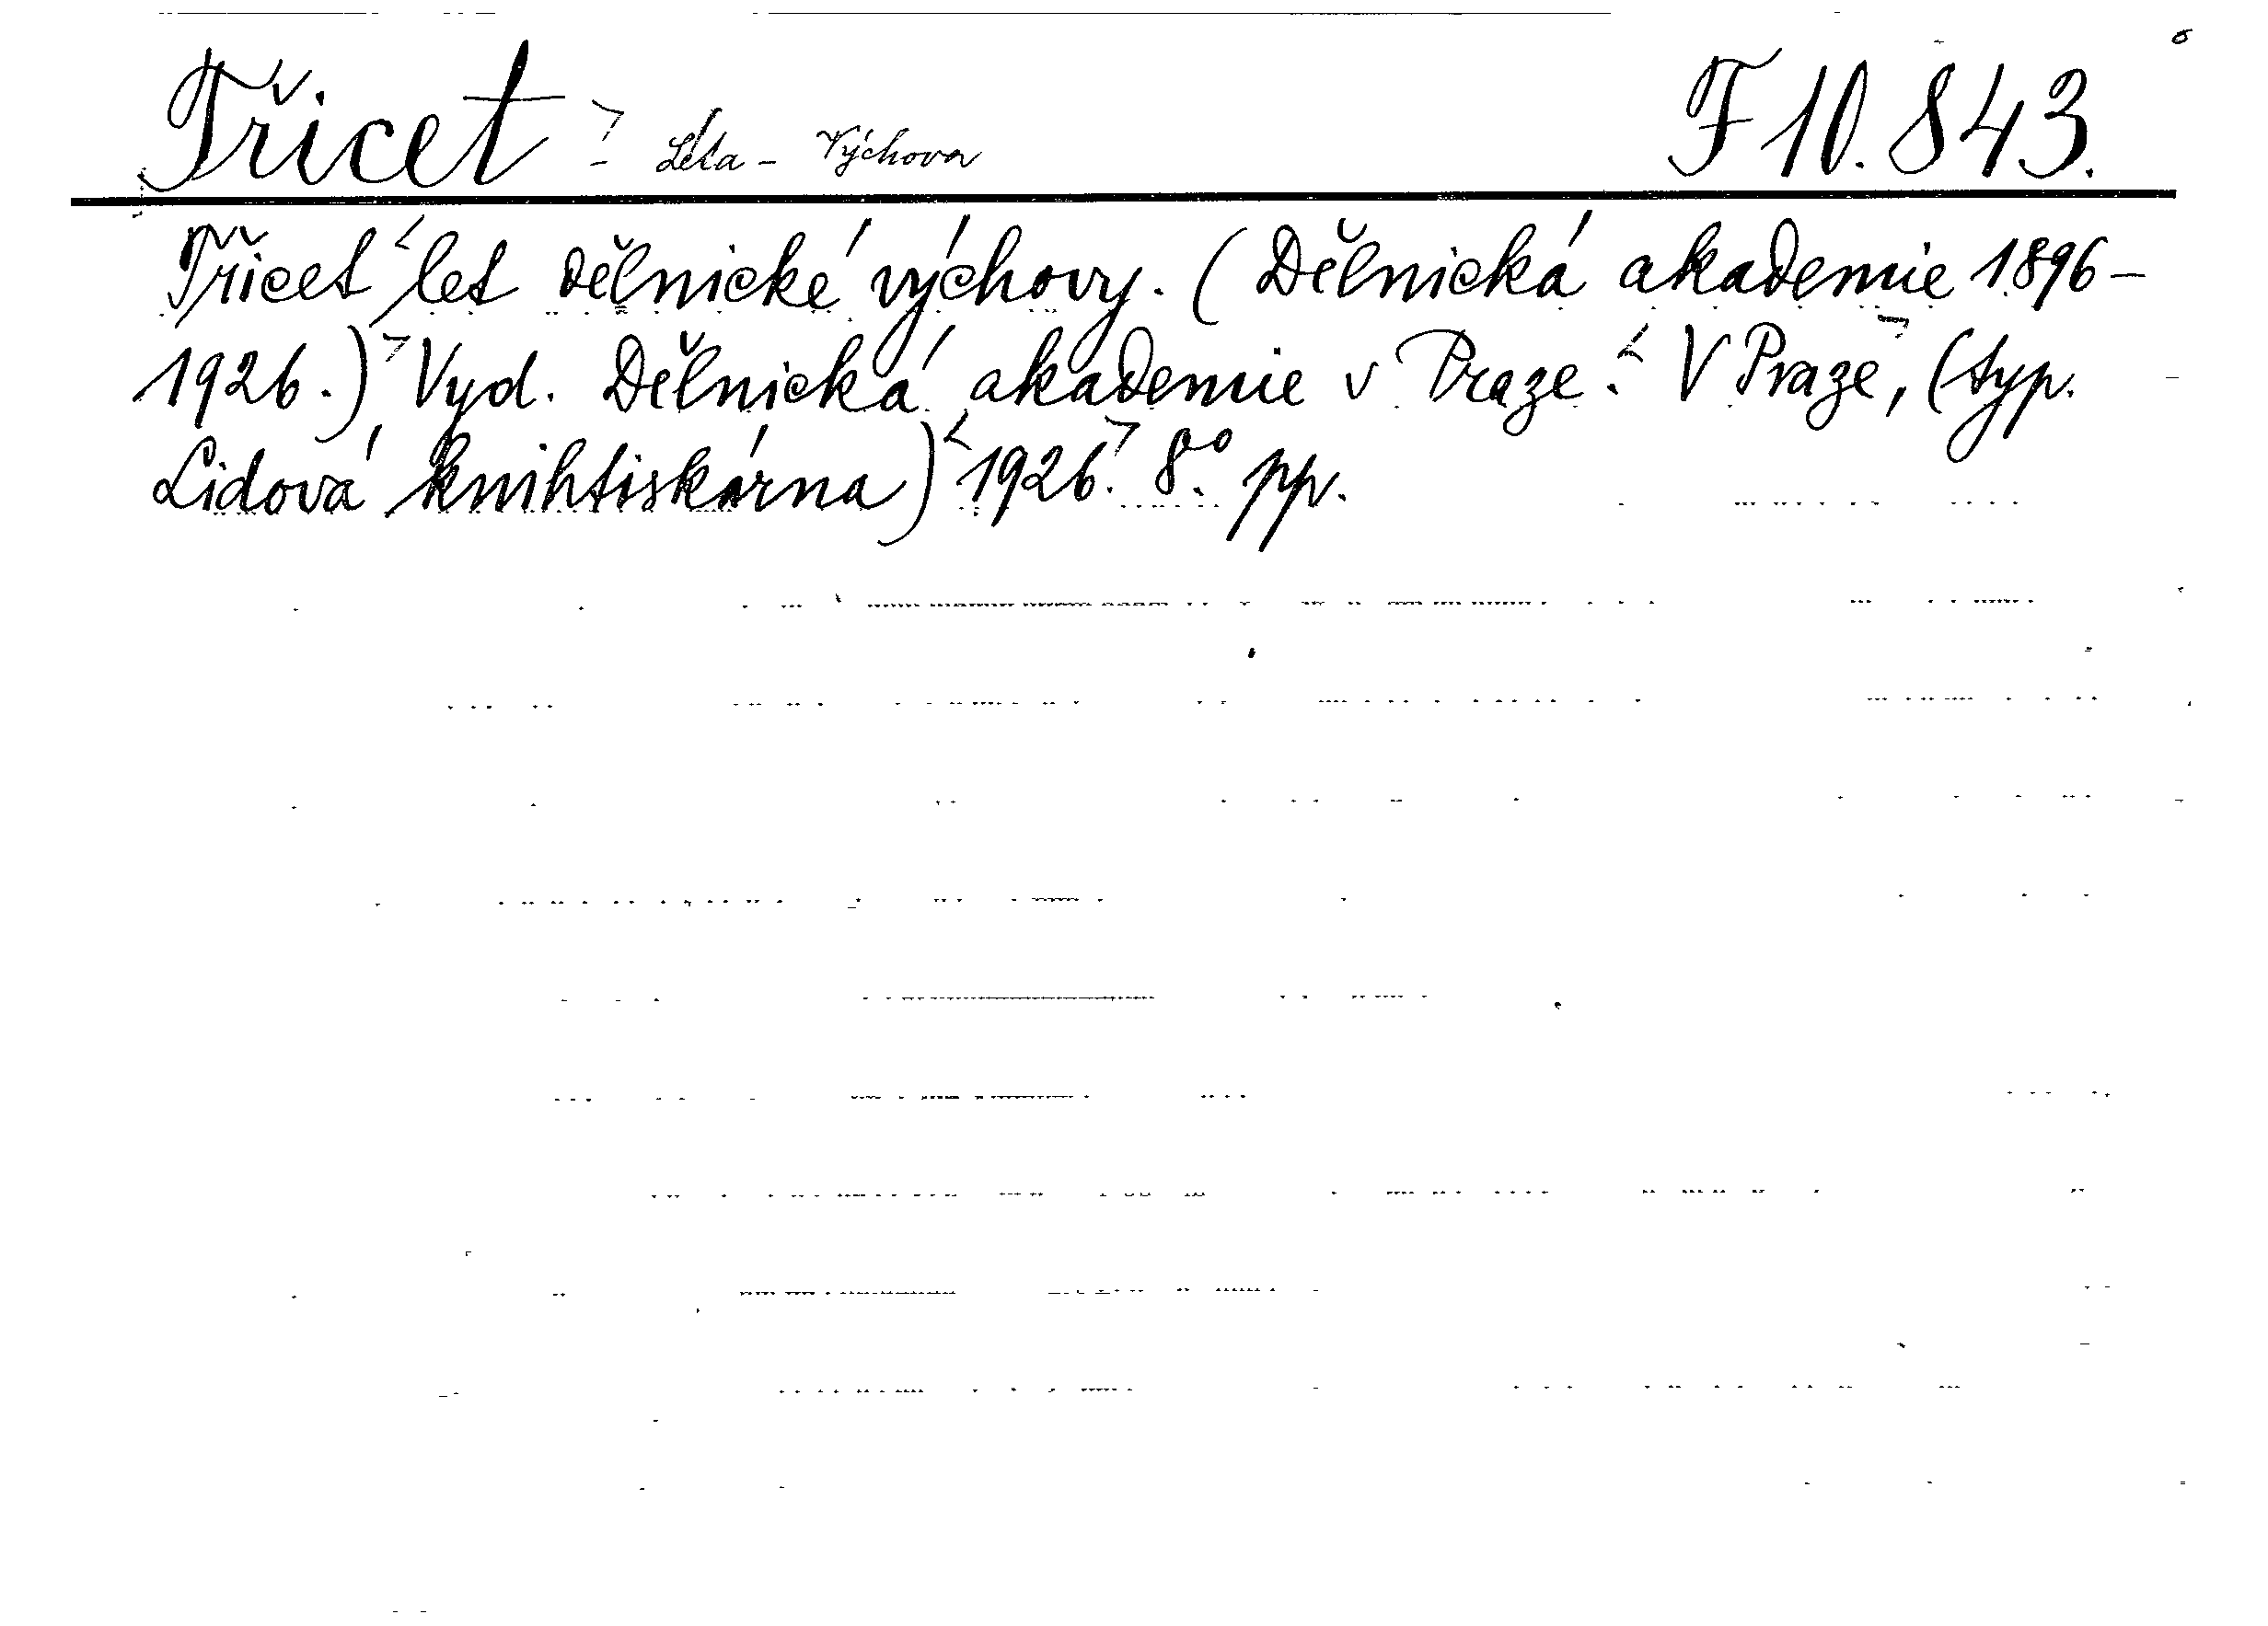 Třicet - Léta - Výchova F 10.843.
Třicet let dělnické výchovy. (Dělnická akademie 1896-
1926.) Vyd. Dělnická akademie v Praze. V Praze, (typ.
Lidová knihtiskárna) 1926. 8° pp.